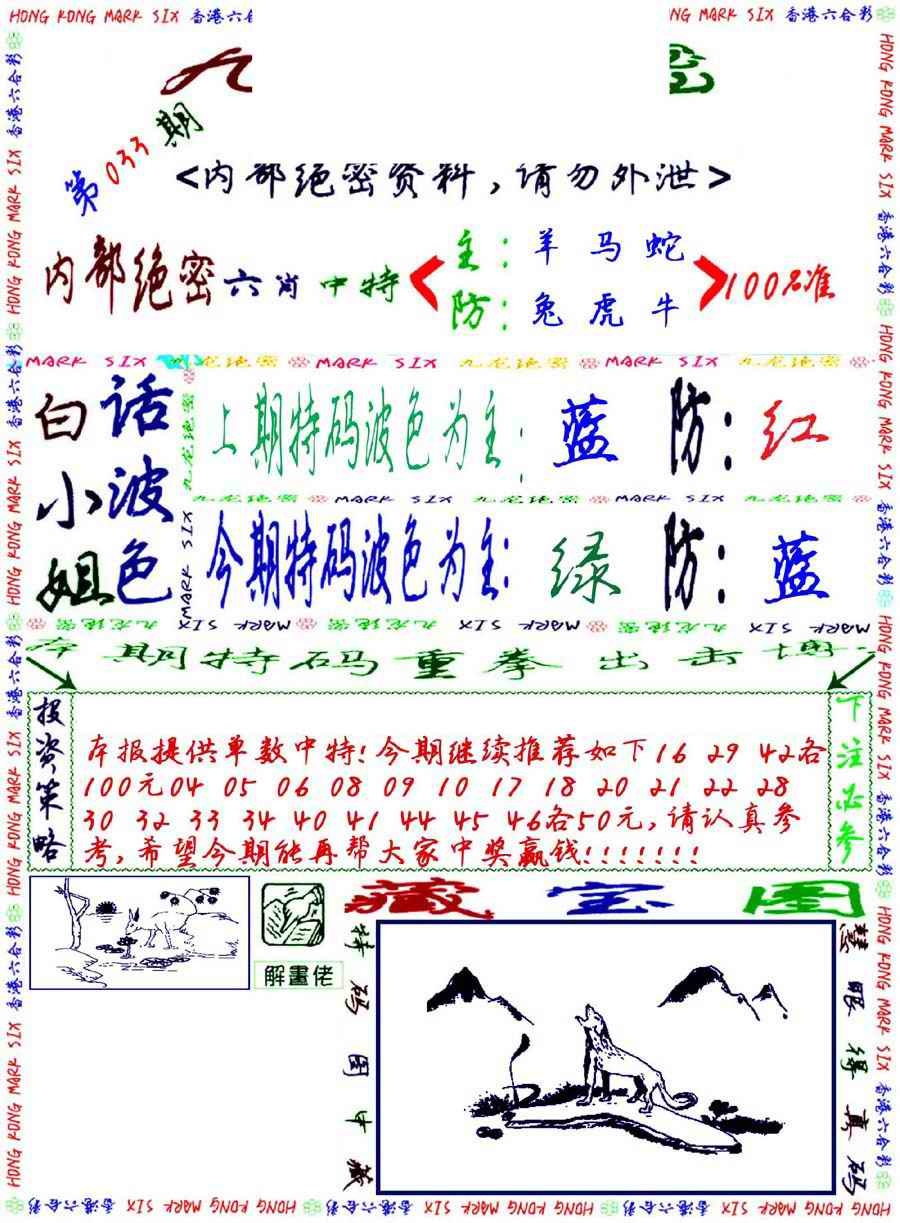 HONG KONG MARK SIX 香港六合彩
NG MARK SIX 香港六合彩
九
第033期
<内部绝密资料,请勿外泄>
内部绝密六肖中特
主:羊马蛇
防:兔虎牛
100%准
MARK SIX 九龙绝密 MARK SIX 九龙绝密 MARK SIX 九龙绝密
白话
小波
姐色
上期特码波色为主: 蓝 防: 红
九龙绝密 MARK SIX 九龙绝密 MARK SIX 九龙绝密
今期特码波色为主: 绿 防: 蓝
九龙绝密 MARK SIX 九龙绝密 MARK SIX 九龙绝密 MARK SIX
本期特码重拳出击博
投资策略
本报提供单数中特!今期继续推荐如下16 29 42各
100元04 05 06 08 09 10 17 18 20 21 22 28
30 32 33 34 40 41 44 45 46各50元,请认真参
考,希望今期能再帮大家中奖赢钱!!!!!!!
下注必参
藏宝图
解畫佬
特码图中藏
慧眼得真码
HONG KONG MARK SIX 香港六合彩